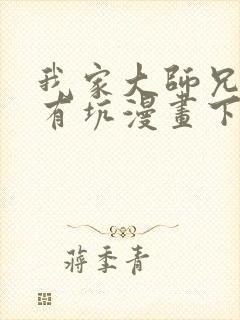 我家大師兄
有坑漫畫下
蔣季青